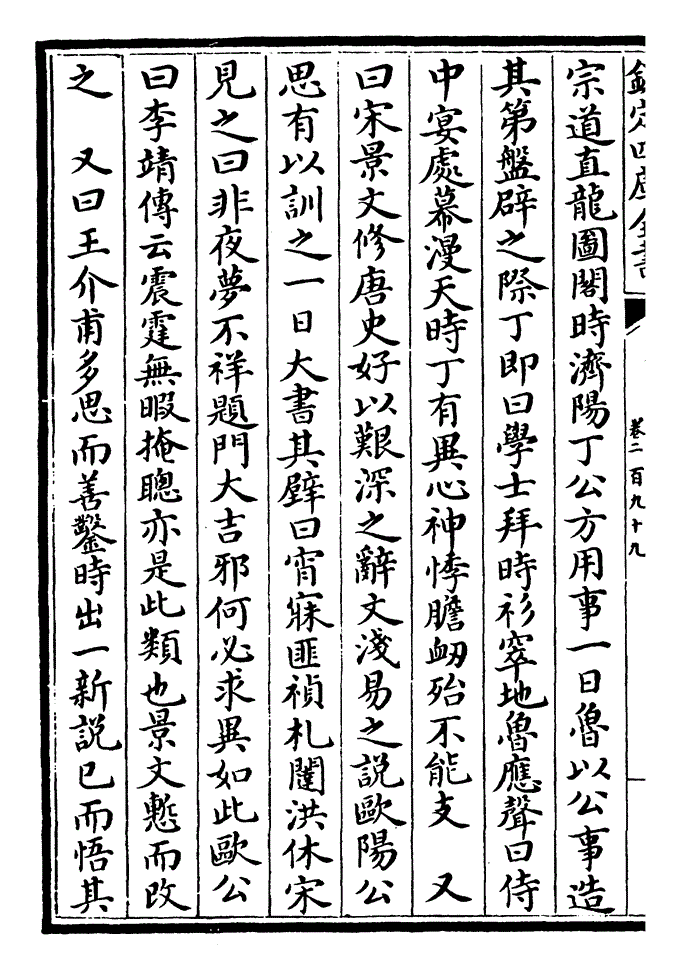 欽定四庫全書
卷二百九十九
宗道直龍圖閣時濟陽丁公方用事一日魯以公事造
其第盤辟之際丁即曰學士拜時衫窣地魯應聲曰侍
中宴處幕漫天時丁有異心神悸膽衂殆不能支　又
曰宋景文修唐史好以艱深之辭文淺易之說歐陽公
思有以訓之一日大書其壁曰宵寐匪禎札闥洪休宋
見之曰非夜夢不祥題門大吉邪何必求異如此歐公
曰李靖傳云震霆無暇掩聰亦是此類也景文慙而改
之　又曰王介甫多思而善鑿時出一新說已而悟其